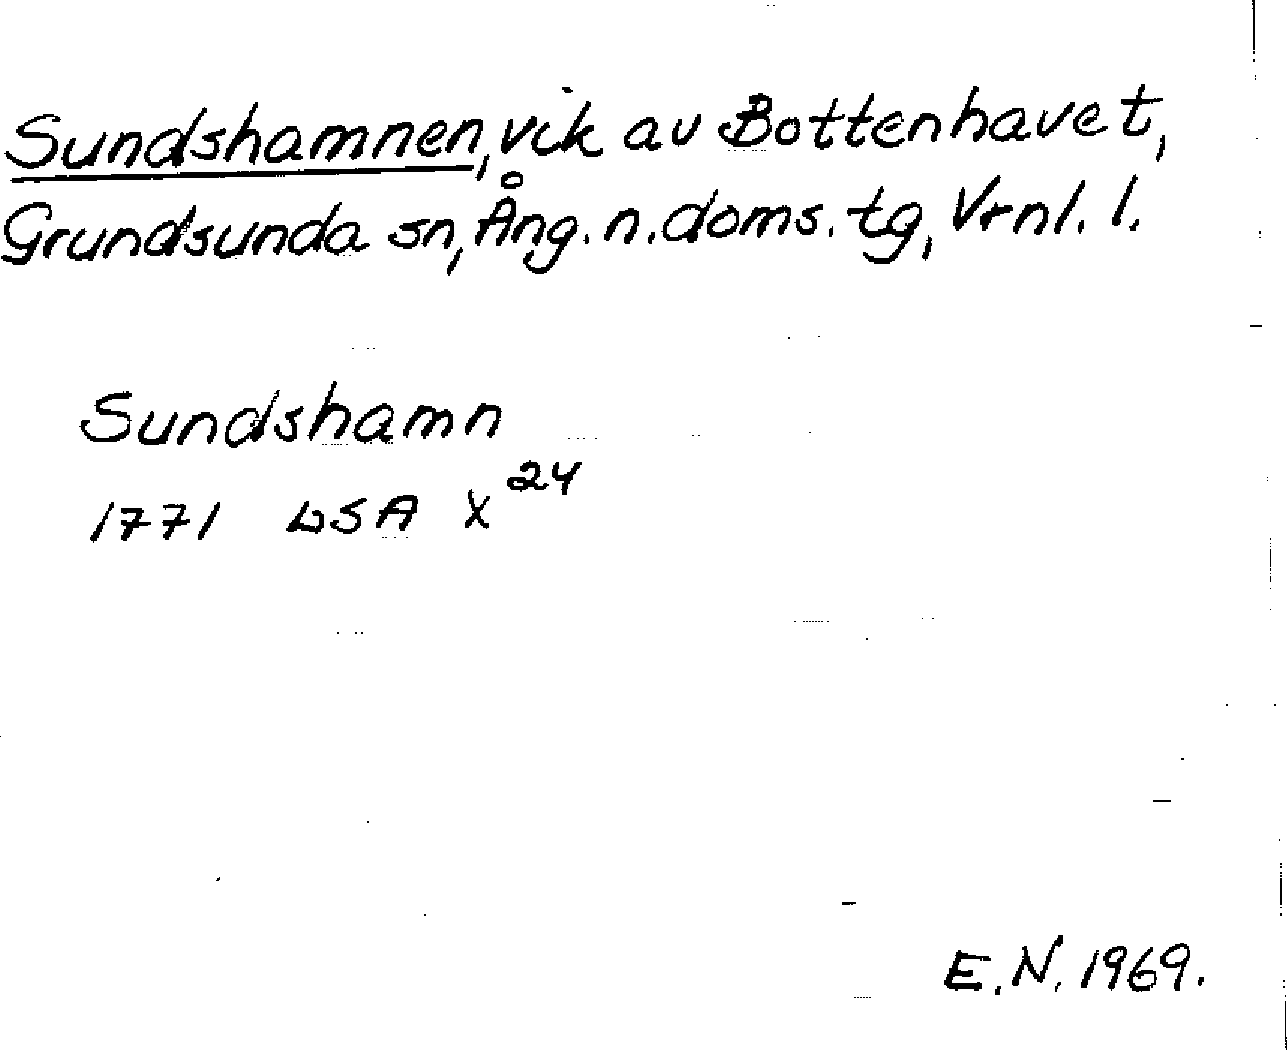 Sundshamnen, vik av Bottenhavet,
Grundsunda sn, Ång. n. doms. tg, Vrnl. l.
Sundshamn
1771 LSA X 24
E.N. 1969.